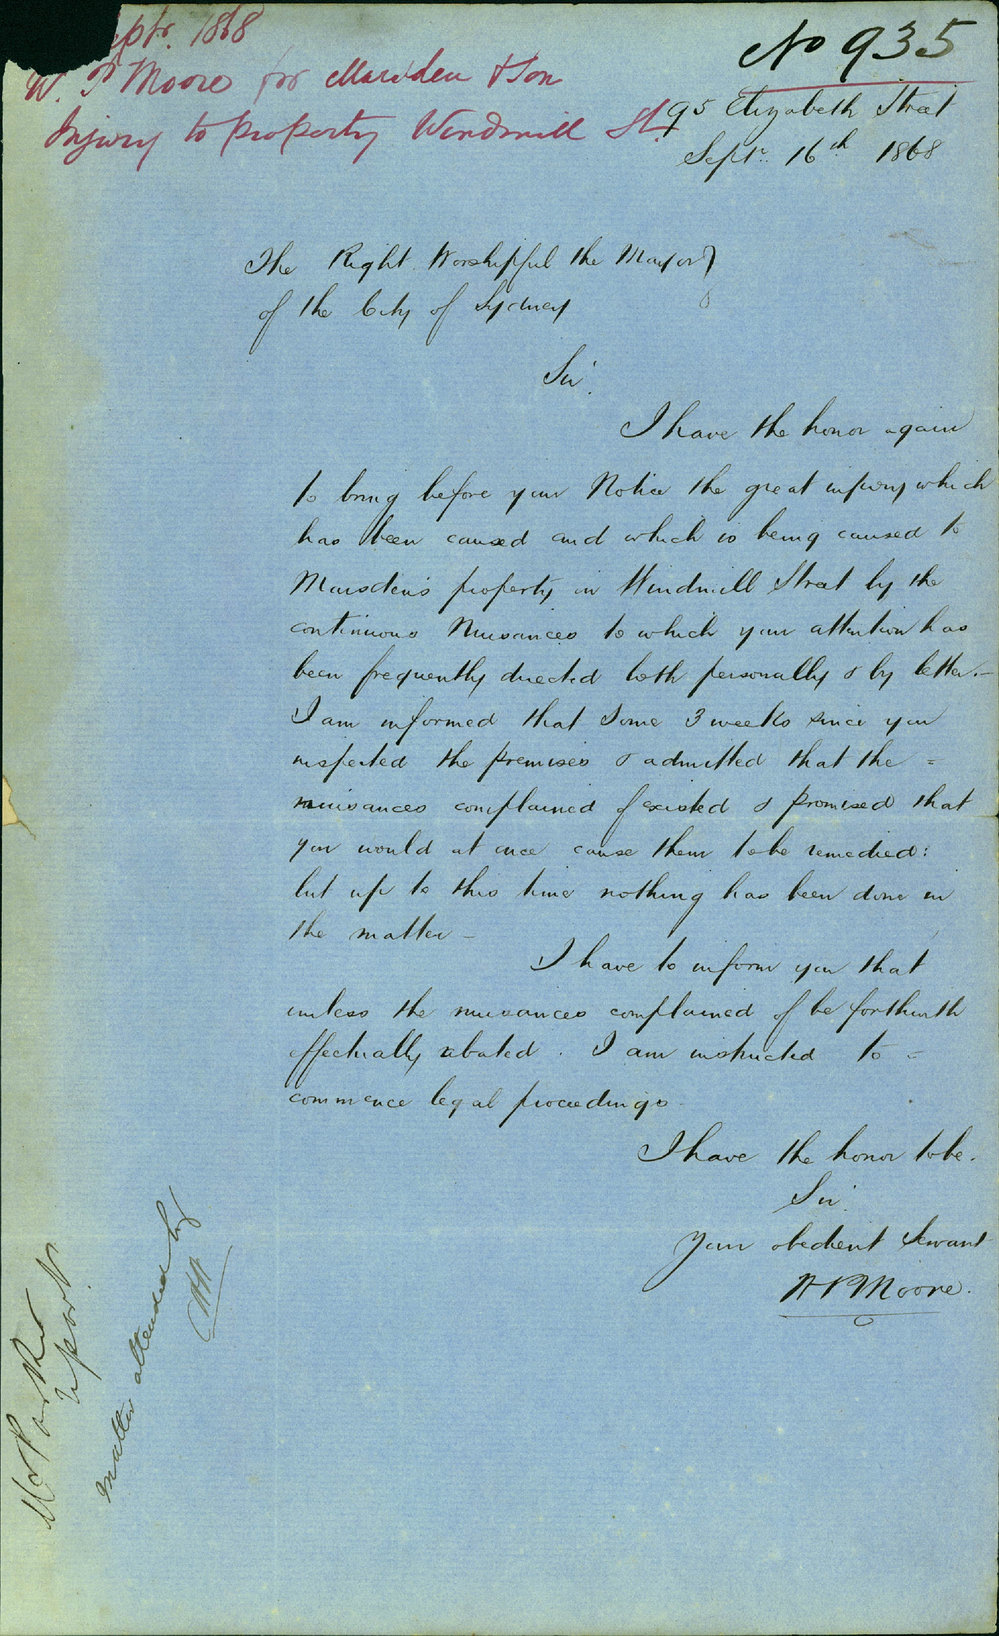 Septr. 1868
W. P Moore for Marsden & Son
Injury to property Windmill St.
No 935
95 Elizabeth Street
Septr. 16th 1868
The Right Worshipful the Mayor
of the City of Sydney
Sir.
I have the honor again
to bring before your Notice the great injury which
has been caused and which is being caused to
Marsden's property in Windmill Street by the
continuous Nuisances to which your attention has
been frequently directed both personally & by letter.—
I am informed that some 3 weeks since you
inspected the premises & admitted that the =
nuisances complained of existed & promised that
you would at once cause them to be remedied:
but up to this time nothing has been done in
the matter —
I have to inform you that
unless the nuisances complained of be forthwith
effectually abated. I am instructed to =
commence legal proceedings
I have the honor to be.
Sir.
Your obedient Servant
W P Moore.
Mr
report.
Matter attended to